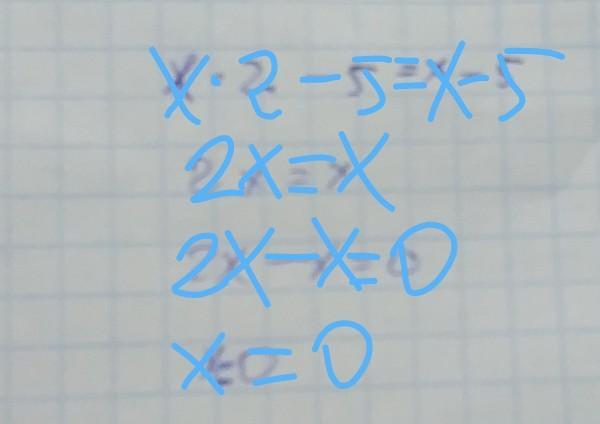 x · 2 - 5 = x - 5
2x = x
2x - x = 0
x = 0